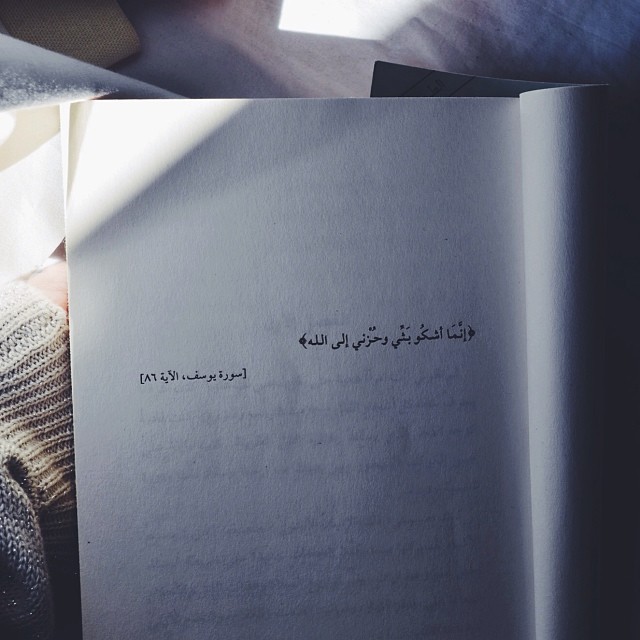 ﴿إِنَّمَا أشكُو بَثِّي وحُزْني إلى الله﴾
[سورة يوسف، الآية ٨٦]